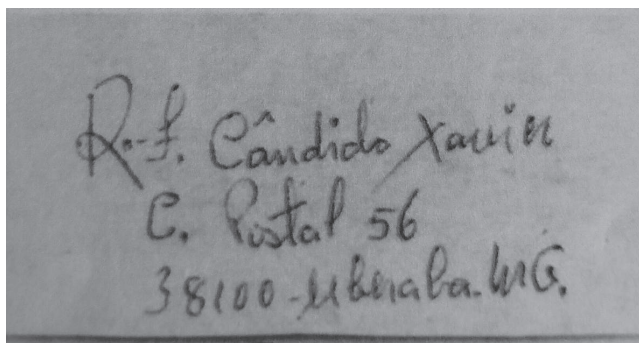 R.-F. Cândido Xavier
C. Postal 56
38100-Uberaba. MG.